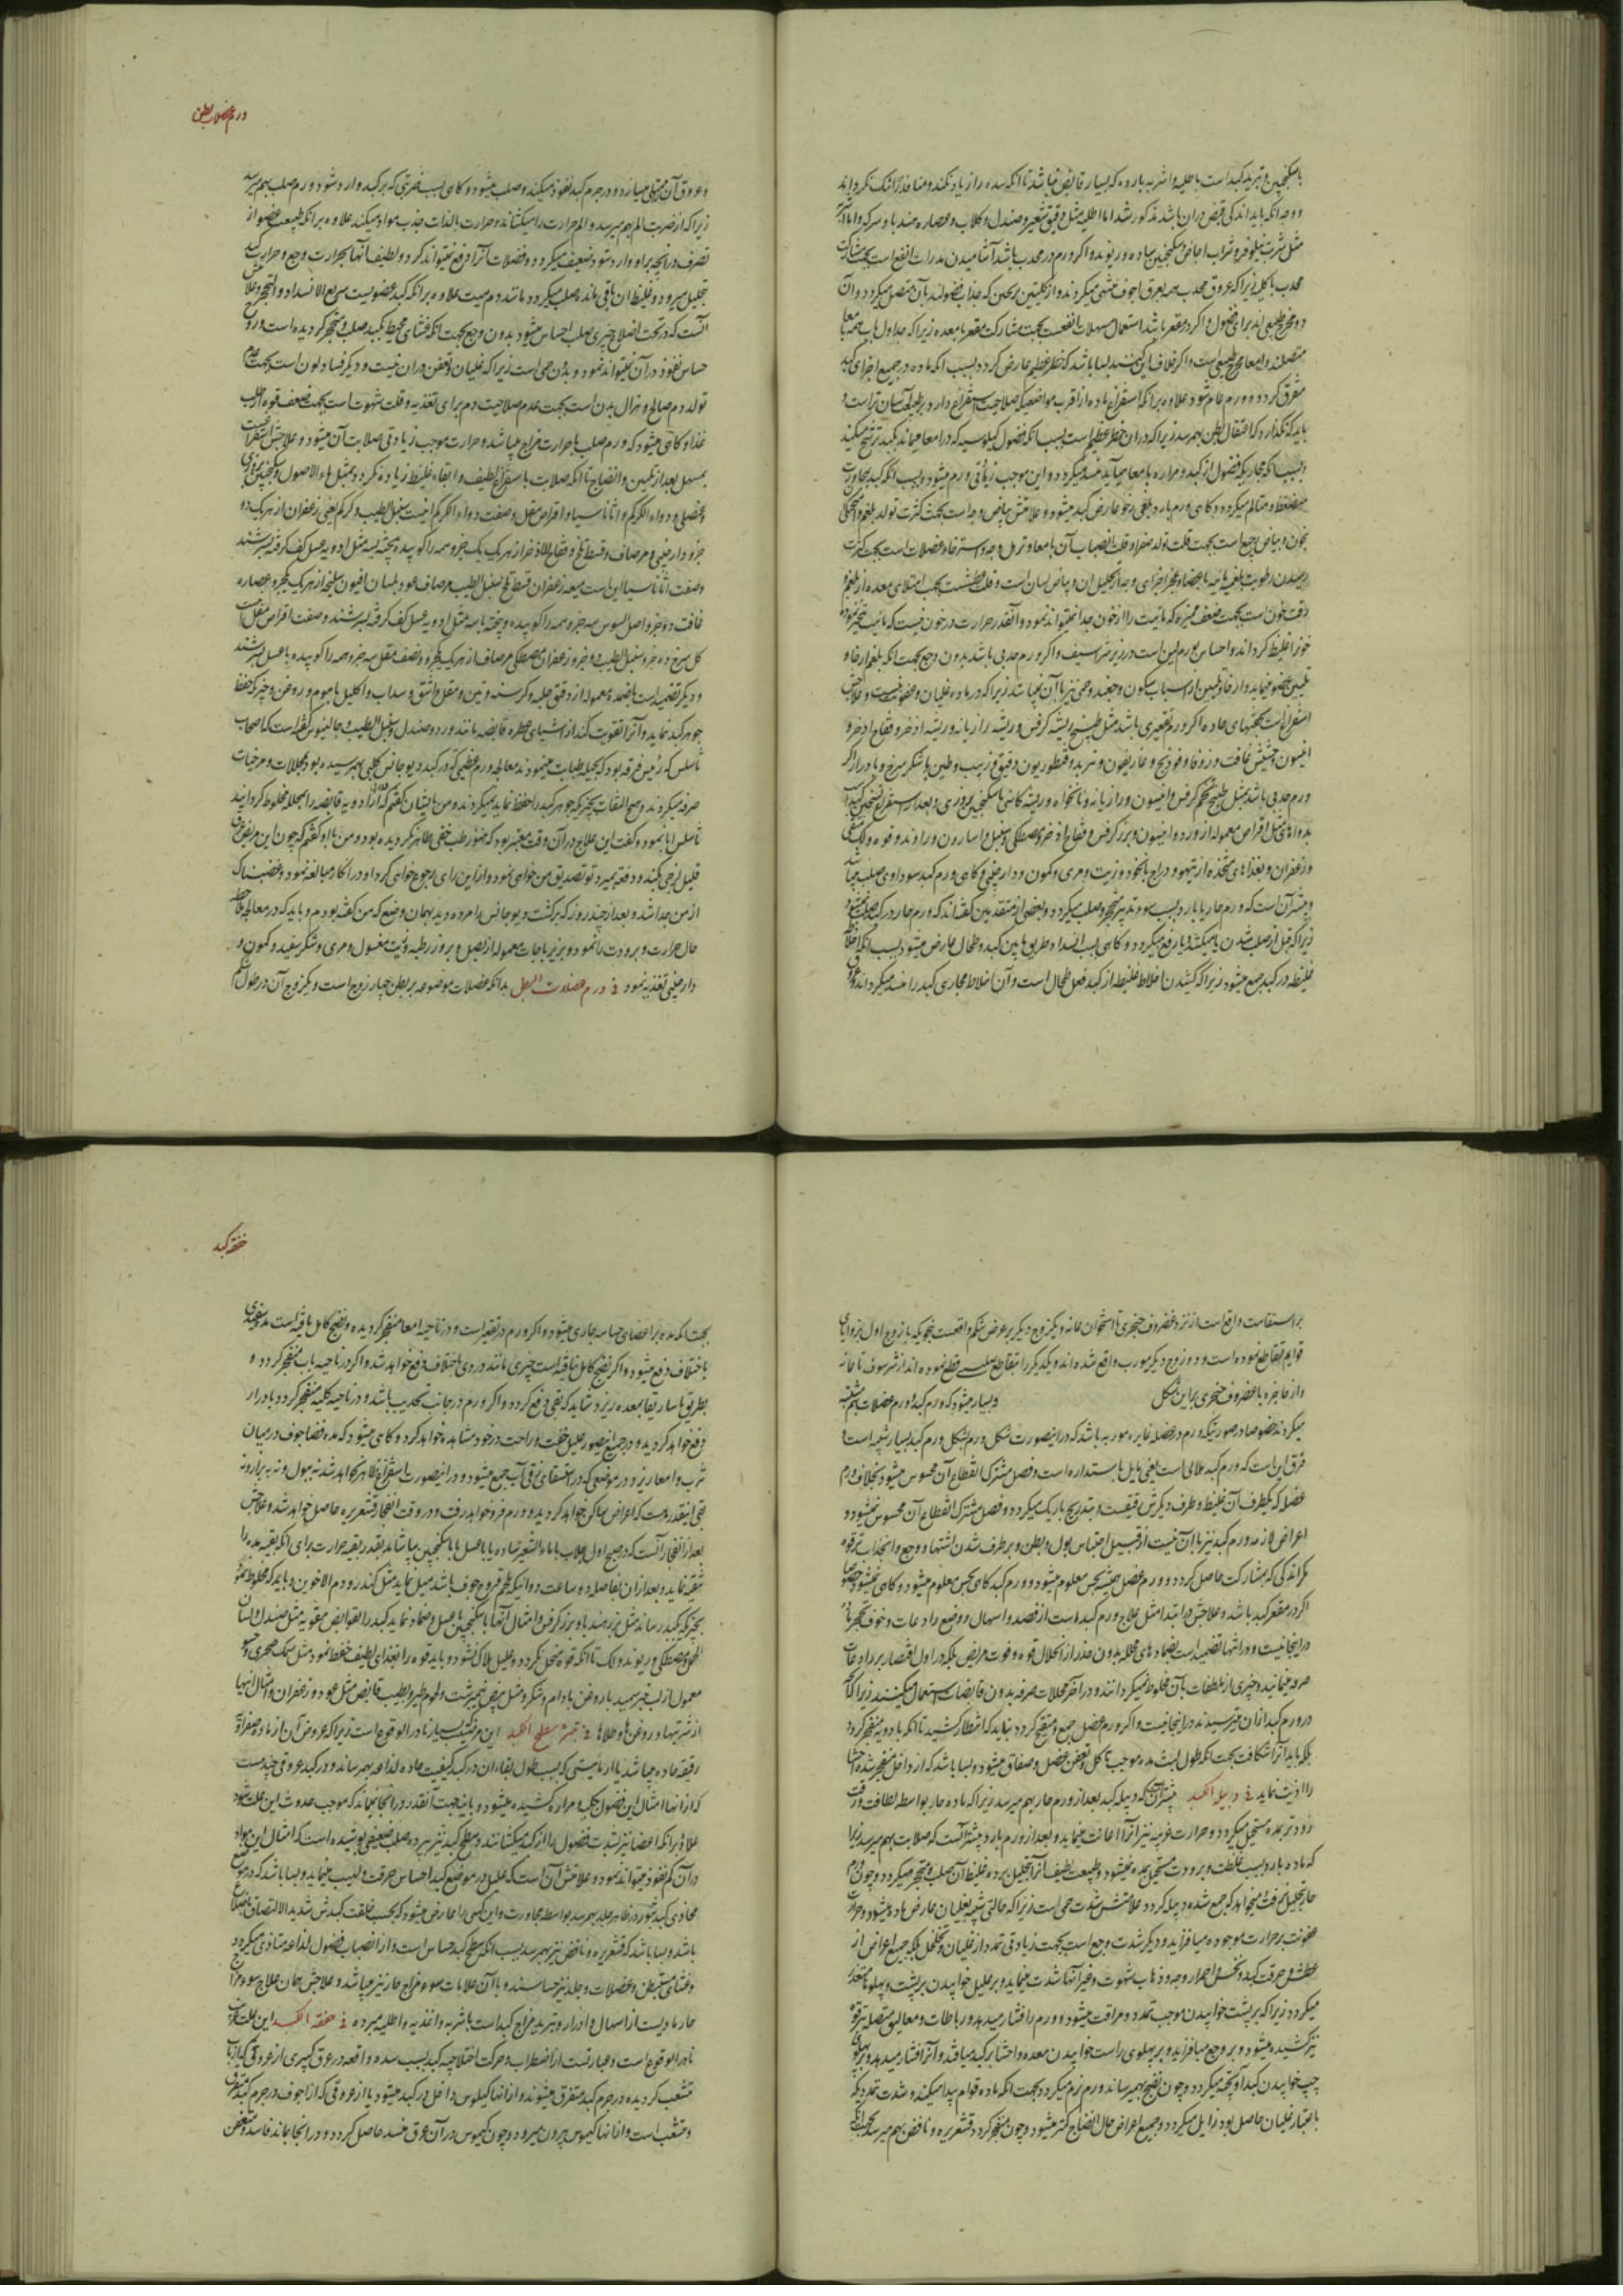 با سکنجبین و تبرید کبد است باطلیه و اشربه بارده که بسیار قابض نباشد تا آنکه سده را زیاد نکند و منافذ را تنگ نگرداند
و وجه آنکه باید اندکی قبض در آن باشد مذکور شد اما اطلیه مثل دقیق شعیر و صندل و کلاب و عصاره هندبا و سرکه و اما اشربه
مثل شربت نیلوفر و شراب اجاص و سکنجبین ساده و ریوند و اگر ورم در محدب باشد آشامیدن مدرات انفع است بجهت مشارکت
محدب با کلیه زیرا که عروق محدب همه بعرق اجوف منتهی میگردند و از
دو مخرج طبیعی اند برای فضول و اگر در مقعر باشد استعمال مسهلات انفعست بجهت مشارکت مقعر با معده زیرا که جداول باب همه با امعا
متصلند و امعا مخرج طبیعی است و اگر خلاف این کنند بسا باشد که خطر عظیم عارض گردد بسبب آنکه ماده در جمیع اجزای کبد
متفرق گردد و ورم عام شود علاوه بر آنکه استفراغ ماده از اقرب مواضعی که صلاحیت استفراغ دارد بر طبیعت آسان تر است و
باید که نگذارد که اعتقال بطن بهم رسد زیرا که در آن خطر عظیم است بسبب آنکه فضول کیلوسیه که در امعا میماند بکبد ترشح میکند
و بسبب آنکه مجاری که فضول از کبد و مراره با معا میآید منسد میگردد و این موجب زیادتی ورم میشود و بسبب آنکه کبد بمجاورت
منضغط و متالم میگردد و گاهی ورم بارد بلغمی رخو عارض کبد میشود و علامتش بیاض وجه است بجهت کثرت تولد بلغم و
بخون و بیاض رجیع است بجهت قلت تولد صفرا و قلت انصباب آن با معا و تربل وجه و استرخاء عضلات است بجهت کثرت
رسیدن رطوبت بلغمیه مائیه باعضا و بیاض لسان است و قلت عطشست بجهت امتلای معده از بلغم
و رقت خون است بجهت ضعف ممیزه که مائیت را از خون جدا نمیتواند نمود و آنقدر حرارت در خون نیست که مائیت تبخیر نموده
خون را غلیظ گرداند و احساس بورم لین است در زیر شراسیف و اگر ورم محدبی باشد بدون وجع بجهت آنکه بلغم ارخا و
تلیین عضو مینماید و ارخا و تلیین از اسباب سکون وجعند و حمی نیز با آن نمیباشد زیرا که در ماده غلیان و عفونت نیست و علاجش
استفراغ است بحقنهای حاده اگر ورم مقعری باشد مثل طبیخ ریشه کرفس و ریشه رازیانه و ریشه اذخر و فقاح اذخر و
انیسون و حشیش غافت و زوفا و فودنج و غاریقون و تربد و قنطوریون دقیق و زبیب و طین با شکر سرخ و بادرار اگر
ورم محدبی باشد بمثل طبیخ تخم کرفس و انیسون و رازیانه و نانخواه و ریشه کاسنی با سکنجبین بزوری و بعد از استفراغ تسخین کبد
بدواهای مثل اقراص معموله از ورد و انیسون و بزر کرفس و فقاح اذخر و مصطکی و سنبل و اسارون و راوند و فوه و لک منقی
و زعفران و بغذاهای متخذه از تیهو و دراج با نخود و زیت و مری و کمون و دارچینی و گاهی ورم کبد سوداوی صلب میباشد
و بیشتر آن است که ورم حار یا بارد بسبب سوء تدبیر متحجر و صلب میگردد و بعضی از متقدمین گفته اند که ورم حار در کبد صلب نمیشود
زیرا که قبل از صلب شدن یا میکشد و یا رفع میگردد و گاهی بسبب انسداد طریق مابین کبد و طحال عارض میشود بسبب آنکه اخلاط
غلیظه در کبد جمع میشود زیرا که کشیدن اخلاط غلیظه از کبد فعل طحال است و آن اخلاط مجاری کبد را منسد میگرداند و
ورم عضلات بطن
و عروق آن ممتلی میسازد و در جرم کبد نفوذ میکند و صلب میشود و گاهی بسبب ضربتی که بر کبد وارد شود ورم صلب بهم میرسد
زیرا که از ضربت الم بهم میرسد و الم حرارت را میکشاند و حرارت بالذات جذب مواد میکند علاوه بر آنکه طبیعت عضو از
تصرف در آنچه بر او وارد شود ضعیف میگردد و فضلات آن را دفع نمیتواند کرد و لطیف آنها بحرارت وجع و حرارت کبد
بتحلیل میرود و غلیظ آن باقی مانده صلب میگردد مانند دم میت علاوه بر آنکه کبد عضویست سریع الانسداد و التحجر و علامتش
آنست که در تحت اضلاع چیزی صلب احساس میشود بدون وجع بجهت آنکه غشای محیط بکبد صلب و متحجر گردیده است و روح
حساس نفوذ در آن نمیتواند نمود و بدون حمی است زیرا که غلیان و تعفن در آن نیست و دیگر فساد لون است بجهت عدم
تولد دم صالح و هزال بدن است بجهت عدم صلاحیت دم برای تغذیه و قلت شهوت است بجهت ضعف قوه از طلب
غذا و گاهی میشود که ورم صلب با حرارت مزاج میباشد و حرارت موجب زیادتی صلابت آن میشود و علاجش استفراغ است
بمسهل بعد از تلیین و انضاج تا آنکه صلابت با استفراغ لطیف و ابقاء غلیظ زیاده نگردد و بمثل ماء الاصول و سکنجبین بزوری
و عنصلی و دواء الکرکم و اثاناسیا و اقراص مقل و صفت دواء الکرکم اینست سنبل الطیب و کرکم یعنی زعفران از هریک دو
جزو دارچینی و مر صاف و قسط تلخ و فقاح الاذخر از هریک یک جزو همه را کوبیده و بیخته بسه مثل ادویه عسل کف گرفته بسرشند
و صفت اثاناسیا این است میعه زعفران قسط تلخ سنبل الطیب مر صاف عود بلسان افیون سلیخه از هریک یکجزو عصاره
غافت دو جزو اصل السوس سه جزو همه را کوبیده و بیخته با سه مثل ادویه عسل کف گرفته بسرشند و صفت اقراص مقل
گل سرخ ده جزو سنبل الطیب زعفران مصطکی مر صاف از هریک یکجزو و نصف مقل سه جزو همه را کوبیده با عسل بسرشند
و دیگر تضمید است باضمده معموله از دقیق حلبه و کرسنه و تین و مقل و اشق و سداب و اکلیل با موم و روغن و چیزی که حفظ
جوهر کبد نماید و آن را تقویت کند از اشیای عطره قابضه مانند ورد و صندل و سنبل الطیب و جالینوس گفته است که اصحاب
ثاسلس که رئیس فرقه بود که بحیله طبابت مینمودند معالجه ورم عظیمی که در کبد دیوجانس کلبی بهم رسیده بود بمحللات و مرخیات
صرفه میکردند و هیچ التفات بچیزی که جوهر کبد را حفظ نماید نمیکردند و من بایشان گفتم که ادویه قابضه را بمحلله مخلوط گردانید
ثاسلس ابا نمود و گفت این علاج در آن وقت معتبر بود که هنوز طب خفی ظاهر نگردیده بود و من با او گفتم که چون این مریض عرق
قلیل لزجی بکند و دفعه بمیرد تو تصدیق من خواهی نمود و از این رای رجوع خواهی کرد او در انکار مبالغه نمود و غضبناک
از من جدا شد و بعد از چند روز که برگشت دیوجانس را مرده دید بهمان وضع که من گفته بودم و باید که در معالجه ملاحظه
حال حرارت و برودت را نمود و بزیرباجات معموله از بصل و بزور رطبه و زیت مغسول و مری و شکر سفید و کمون و
دارچینی تغذیه نمود فی ورم عضلات البطن بدانکه عضلات موضوعه بر بطن چهار زوج است و یکزوج آن در طول
بر استقامت واقع است از نزد غضروف خنجری تا استخوان عانه و یکزوج دیگر بر عرض شکم واقعست بنحویکه با زوج اول بزوایای
قوایم تقاطع نموده است و دو زوج دیگر مورب واقع شده اند و یکدیگر را بتقاطع صلیبی قطع نموده اند از شرسوف تا عانه
و از خاصره تا غضروف خنجری براین شکل و بسیار میشود که ورم کبد و ورم عضلات بهم مشتبه
میگردند خصوصا در صورتیکه ورم در عضله غایره موربه باشد که در اینصورت شکل ورم بشکل ورم کبد بسیار شبیه است و
فرق این است که ورم کبد هلالی است یعنی مایل باستداره است و فصل مشترک انقطاع آن محسوس میشود بخلاف ورم
عضل که یکطرف آن غلیظ و طرف دیگرش رقیقست و بتدریج باریک میگردد و فصل مشترک انقطاع آن محسوس نمیشود و
اعراض لازمه ورم کبد نیز با آن نیست از قبیل احتباس بول و بطن و بر طرف شدن اشتها و وجع و انجذاب ترقوه
مگر اندکی که بمشارکت حاصل گردد و ورم عضل همیشه بحس معلوم میشود و ورم کبد گاهی بحس معلوم میشود و گاهی نمیشود خصوصا
اگر در مقعر کبد باشد و علاجش در ابتدا مثل علاج ورم کبد است از فصد و اسهال و وضع رادعات و خوف تحجر
در اینجا نیست و در انتها تضمید است بضمادهای محلله بدون حذر از انحلال قوه و فوت مریض بلکه در اول اقتصار بر رادعات
صرفه مینمایند و چیزی از ملطفات بآن مخلوط نمیگردانند و در آخر محللات صرفه بدون قابضات استعمال میکنند زیرا که آنچه
در ورم کبد از آن میترسیدند در اینجا نیست و اگر ورم عضل جمع و متقیح گردد نباید که انتظار کشید تا آنکه بادویه منفجر گردد
بلکه باید آن را شکافت بجهت آنکه طول لبث مده موجب تاکل و تعفن عضل و صفاق میشود و بسا باشد که از داخل منفجر شده احشا
را اذیت نماید فی دبیله الکبد بیشتر آن است که دبیله کبد بعد از ورم حار بهم میرسد زیرا که ماده حار بواسطه لطافت و رقت
زودتر بمده مستحیل میگردد و حرارت غریبه نیز آن را اعانت مینماید و بعد از ورم بارد بیشتر آنست که صلابت بهم میرسد زیرا
که ماده بارد بسبب غلظت و برودت مستحیل بمده نمیشود و طبیعت لطیف آن را بتحلیل برده غلیظ آن صلب و متحجر میگردد و چون ورم
حار بتحلیل نرفت و میخواهد که جمع شده دبیله گردد علامتش شدت حمی است زیرا که حالتی شبیه بغلیان عارض ماده میشود و حرارت
عفونت بر حرارت موجوده میافزاید و دیگر شدت وجع است بجهت زیادتی تمدد از غلیان و تخلخل بلکه جمیع اعراض از
عطش و حرقت کبد و نخس و احمرار وجه و ذهاب شهوت و غیر آنها شدت مینماید و بر علیل خوابیدن بر پشت و پهلوها متعذر
میگردد زیرا که بر پشت خوابیدن موجب تمدد مراق میشود و ورم را فشار میدهد و رباطات و معالیق متصله بترقوه
نیز کشیده میشود و بر وجع میافزاید و بر پهلوی راست خوابیدن معده و احشا بر کبد میافتد و آن را فشار میدهد و بر پهلوی
چپ خوابیدن کبد آویخته میگردد و چون نضج بهم رساند ورم نرم میگردد بجهت آنکه ماده قوام پیدا میکند و شدت تمدد که
باعتبار غلیان حاصل بود زایل میگردد و جمیع اعراض حال انضاج کمتر میشود و چون منفجر گردد قشعریره و نافض بهم میرسد بجهت آنکه
خفقه کبد
بجهت آنکه مده بر اعضای حساسه جاری میشود و اگر ورم در تقعیر است و در ناحیه امعا منفجر گردیده و نضج کامل یافته است مده سفیدی
باختلاف دفع میشود و اگر نضج کامل نیافته است چیزی مانند دردی باختلاف دفع خواهد شد و اگر در ناحیه باب منفجر گردد و
بطریق ماساریقا بمعده ریزد شاید که بقی دفع گردد و اگر ورم در جانب تحدیب باشد و در ناحیه کلیه منفجر گردد بادرار
دفع خواهد گردید و در جمیع این صور علیل خفت و راحت در خود مشاهده خواهد کرد و گاهی میشود که مده بفضا جوف در میان
ثرب و امعا ریزد در موضعی که در استسقای زقی آب جمع میشود و در اینصورت استفراغ ظاهر نخواهد شد نه ببول و نه ببراز و نه
بقی اینقدر هست که اعراض ساکن خواهد گردید و ورم فرو خواهد رفت و در وقت انفجار قشعریره حاصل خواهد شد و علاجش
بعد از انفجار آنست که در صبح اول جلاب یا ماء الشعیر ساده یا با عسل یا با سکنجبین بیاشاماند بقدر بقیه حرارت برای آنکه بقیه مده را
تنقیه نماید و بعد از آن بفاصله دو ساعت دوائیکه ملحم قروح جوف باشد میل نماید مثل کندر و دم الاخوین و باید که مخلوط نمود
بچیزی که بکبد رساند مثل بزر هندبا و بزر کرفس و امثال آنها با سکنجبین یا عسل و ضماد نماید کبد را بقوابض مقویه مثل صندل و لسان
الحمل و مصطکی و ریوند و لک تا آنکه قوه منحل نگردد و علیل هلاک نشود و باید قوه را بغذای لطیف حفظ نمود مثل سمک صخری و حسو
معمول از لب خبز سمید با روغن بادام و شکر و مثل بیض نیمبرشت و لحوم طیر و بطیب قابض مثل عود و زعفران و امثال اینها
از شربتها و روغنها و طلاها فی بثور سطح الکبد این مرض بسیار نادر الوقوع است زیرا که عروض آن از ماده صفراوی
رقیقه حاده میباشد یا از مائیتی که بسبب طول بقای آن در کبد کیفیت حاده لذاعه بهم رساند و در کبد عروقی چند هست
که از آنها امثال این فضول بکلیه و مراره کشیده میشود و باینجهت آنقدر در آنجا نمیماند که موجب حدوث این علت شود
علاوه بر آنکه اعضا نیز بشدت فضول را از کبد میکشانند و سطح کبد نیز بپرده صلب ضعیفی پوشیده است که امثال این مواد
در آن کم نفوذ میتواند نمود و علامتش آن است که علیل در موضع کبد احساس حرقت و لهیب مینماید و بسا باشد که در موضع
محاذی کبد بثور در ظاهر جلد بهم رسد بواسطه مجاورت و این کسی را عارض میشود که بحسب خلقت کبدش شدید الالتصاق باضلاع
باشد و بسا باشد که قشعریره و نافض نیز بهم رسد بسبب آنکه سطح کبد حساس است و از انصباب فضول لذاعه متاذی میگردد
و غشای مستبطن و عضلات و جلد نیز حساسند و با آن علامات سوء مزاج حار نیز میباشد و علاجش همان علاج سوء مزاج
حار مادیست از اسهال و ادرار و تبرید مزاج کبد است باشربه و اغذیه و اطلیه مبرده فی خفقه الکبد این علت
نادر الوقوع است و عبارتست از اضطراب و حرکت اختلاجیه کبد بسبب سده واقعه در عرق کبیری از عروقی که از باب
منشعب گردیده در جرم کبد متفرق میشوند و از آنها کیلوس داخل در کبد میشود یا از عروقی که از اجوف در جرم کبد متفرق
و منشعب است و از آنها کیموس بیرون میرود و چون کیموس در آن عرق منسد حاصل گردد و در آنجا بماند فاسد و متعفن